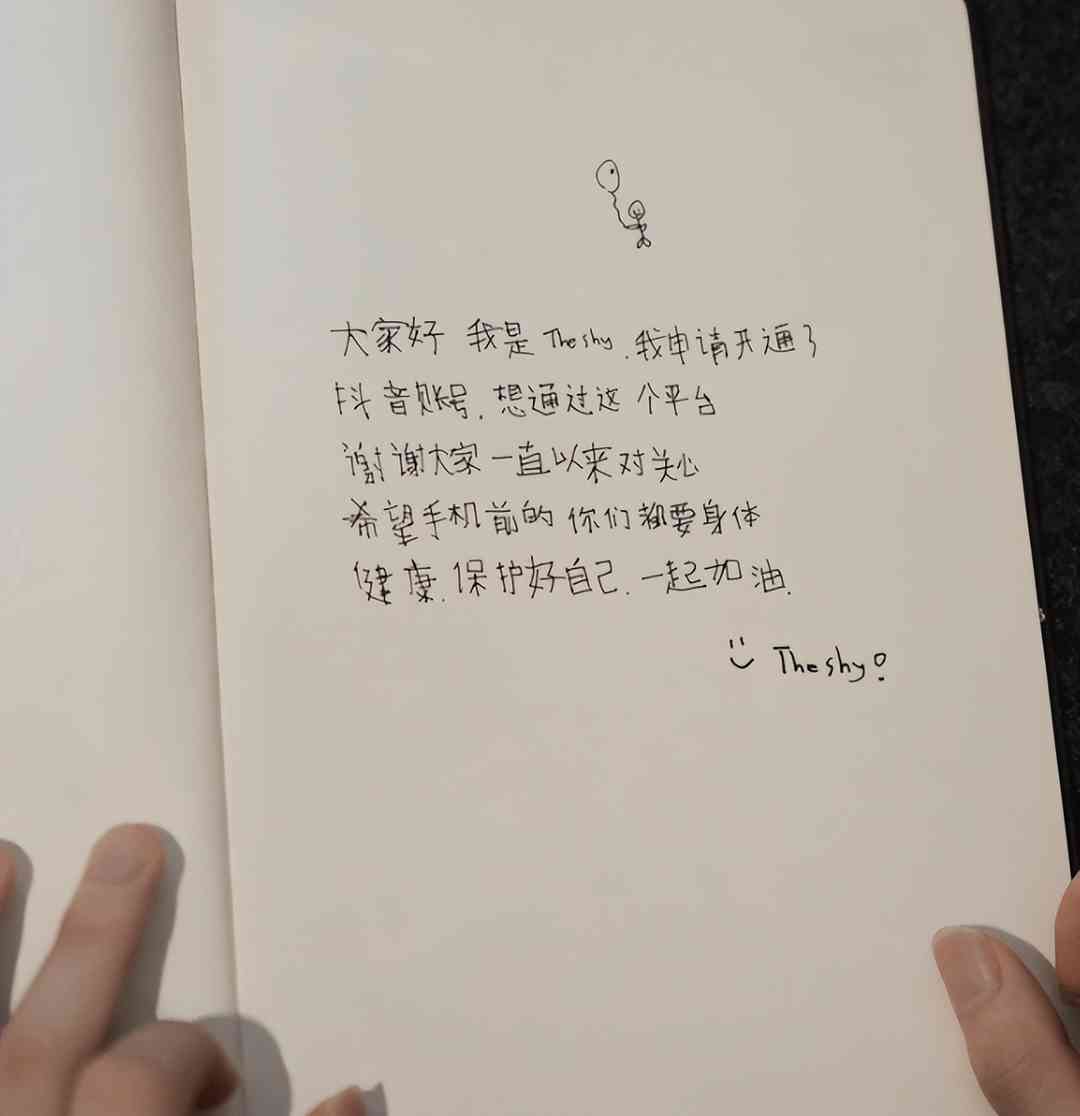 大家好 我是 Theshy.我申请开通了
抖音账号.想通过这个平台
谢谢大家一直以来对关心
希望手机前的你们都要身体
健康.保护好自己.一起加油.
Theshy!